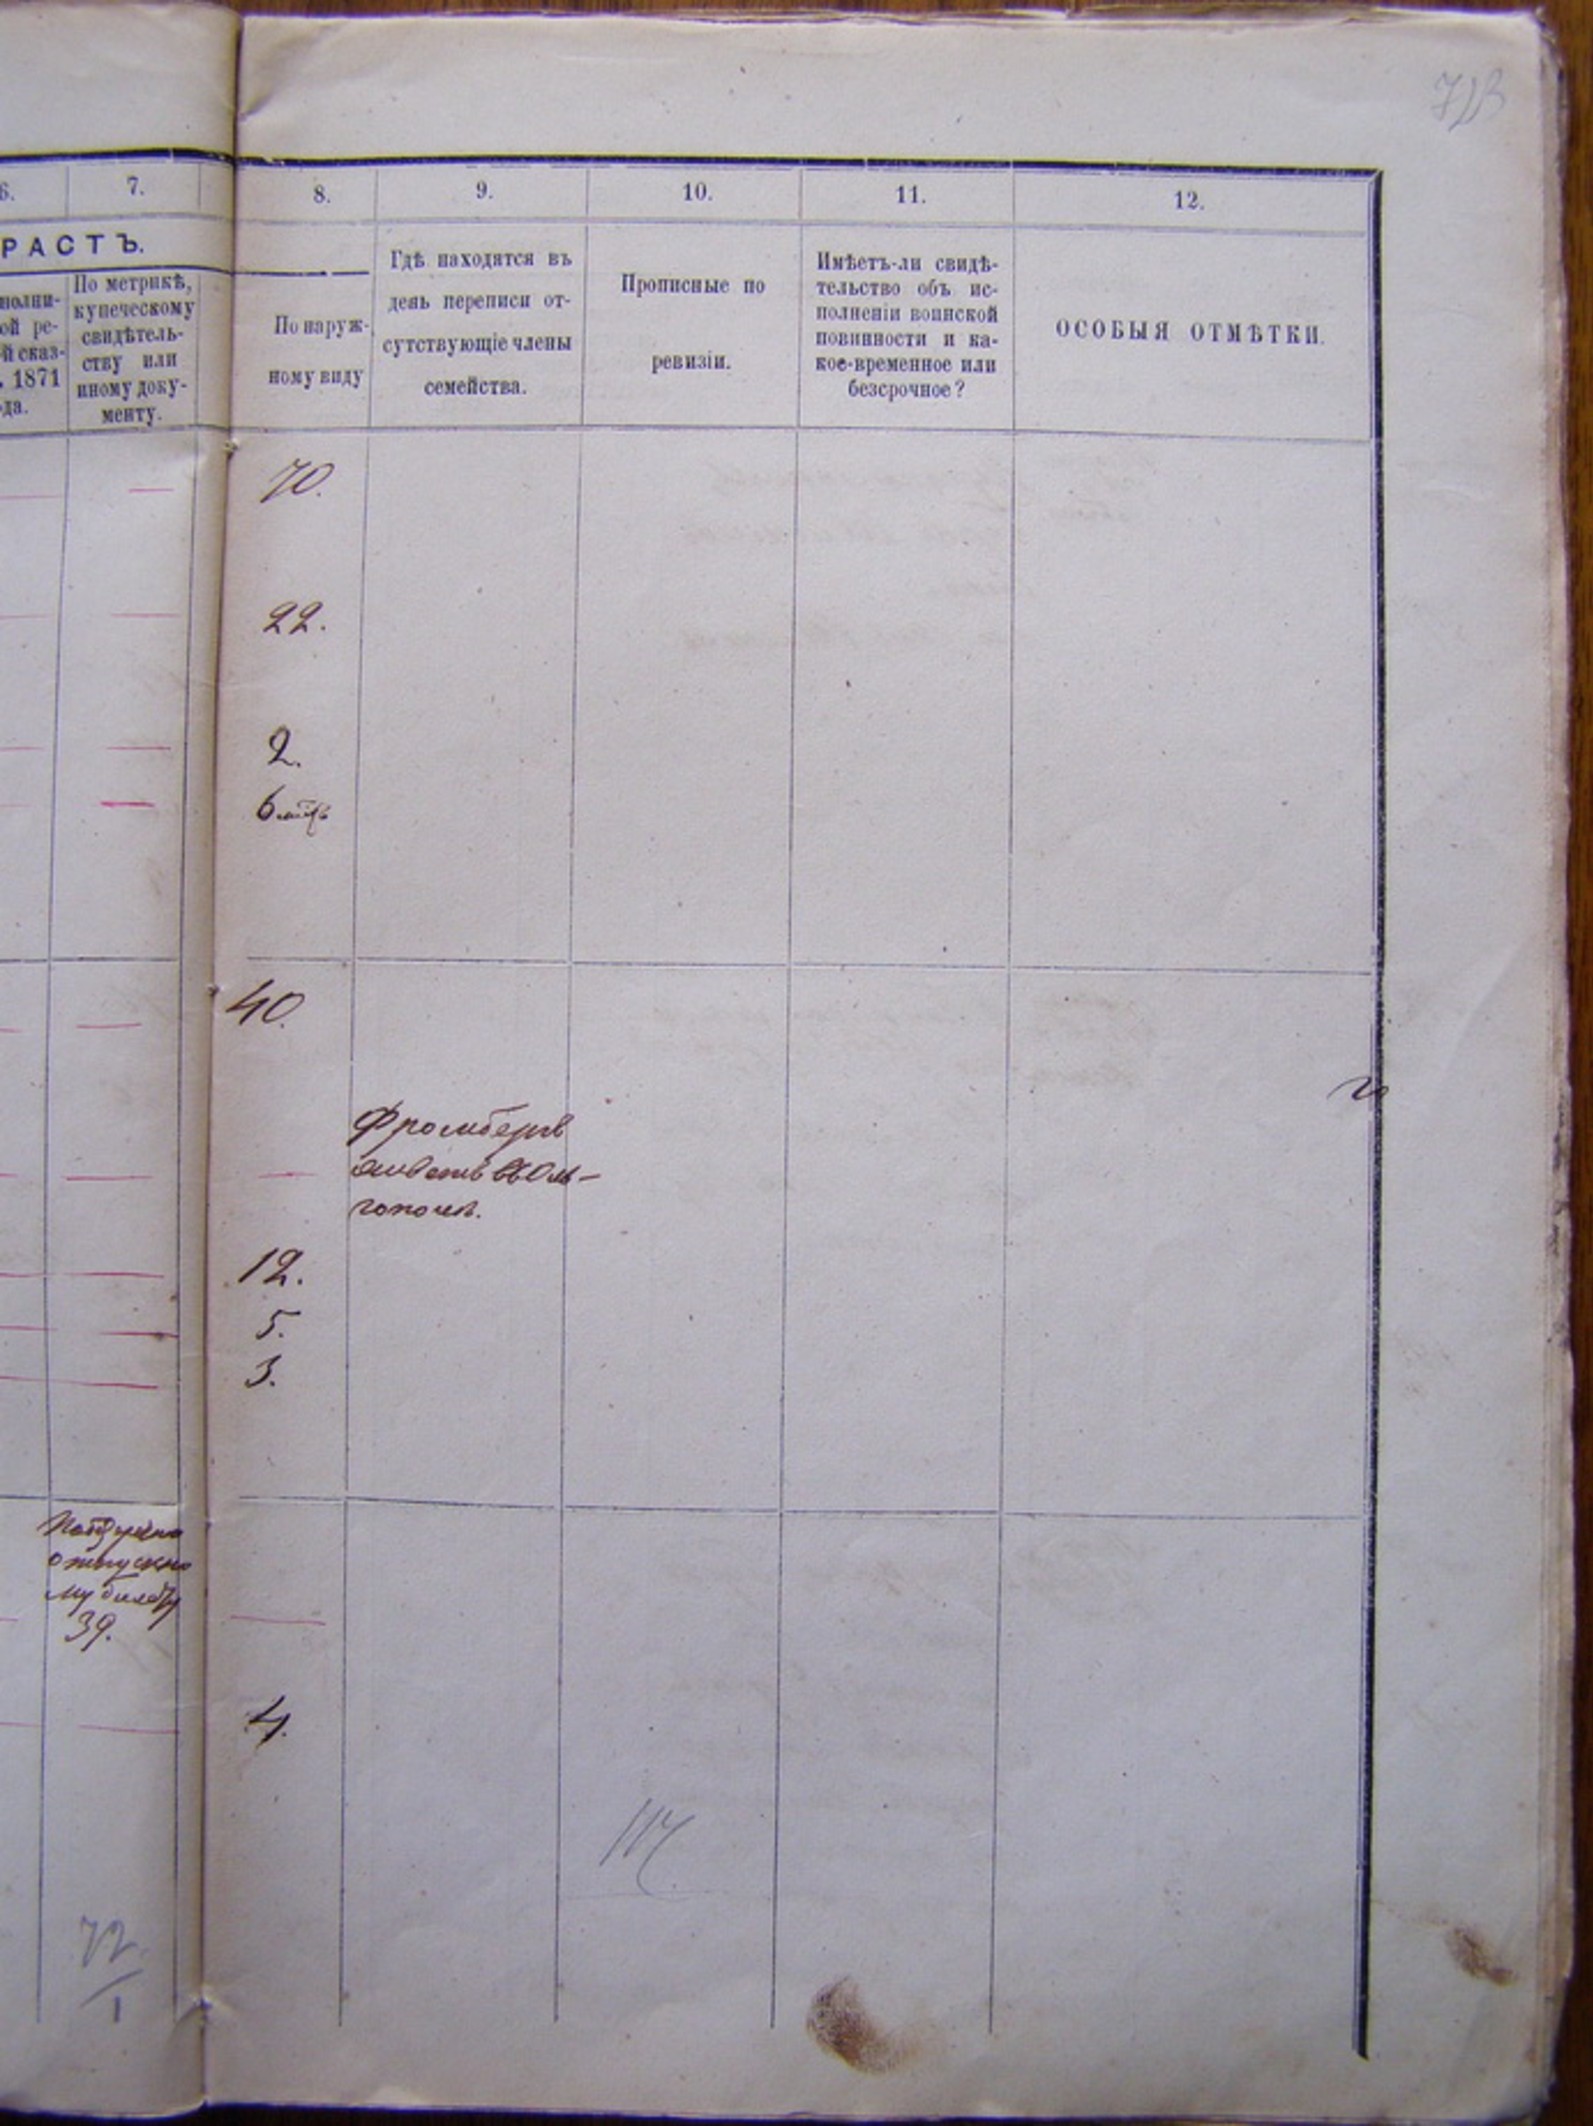 6. 7. 8. 9. 10. 11. 12.
РАСТЪ.
полни-
ой ре-
й сказ-
. 1871
да.
По метрикѣ,
купеческому
свидѣтель-
ству или
иному доку-
менту.
По наруж-
ному виду
Гдѣ находятся въ
день переписи от-
сутствующіе члены
семейства.
Прописные по
ревизіи.
Имѣетъ-ли свидѣ-
тельство объ ис-
полненіи воинской
повинности и ка-
кое-временное или
безсрочное?
ОСОБЫЯ ОТМѢТКИ.
70.
22.
2.
6
40.
Фромберъ
живетъ въ Оль-
гополѣ.
12.
5.
3.
отпускно
му билету
39.
4.
72
1